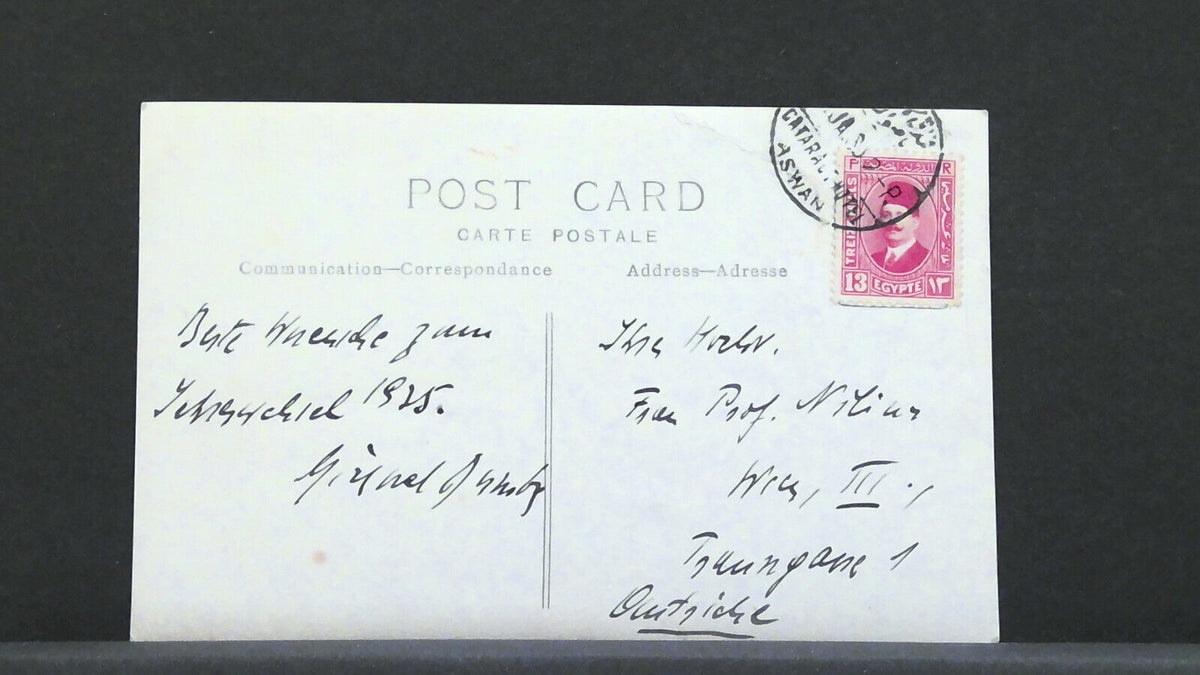 POST CARD
CARTE POSTALE
Communication—Correspondance
Address—Adresse
CATARACT HOTEL
ASWAN
JA
TREIZE
13
EGYPTE
١٣
Beste Wuensche zum
Jahreswechsel 1935.
Ihre Hochw.
Frau Prof. Nilius
Wien, III.,
Traungasse 1
Autriche